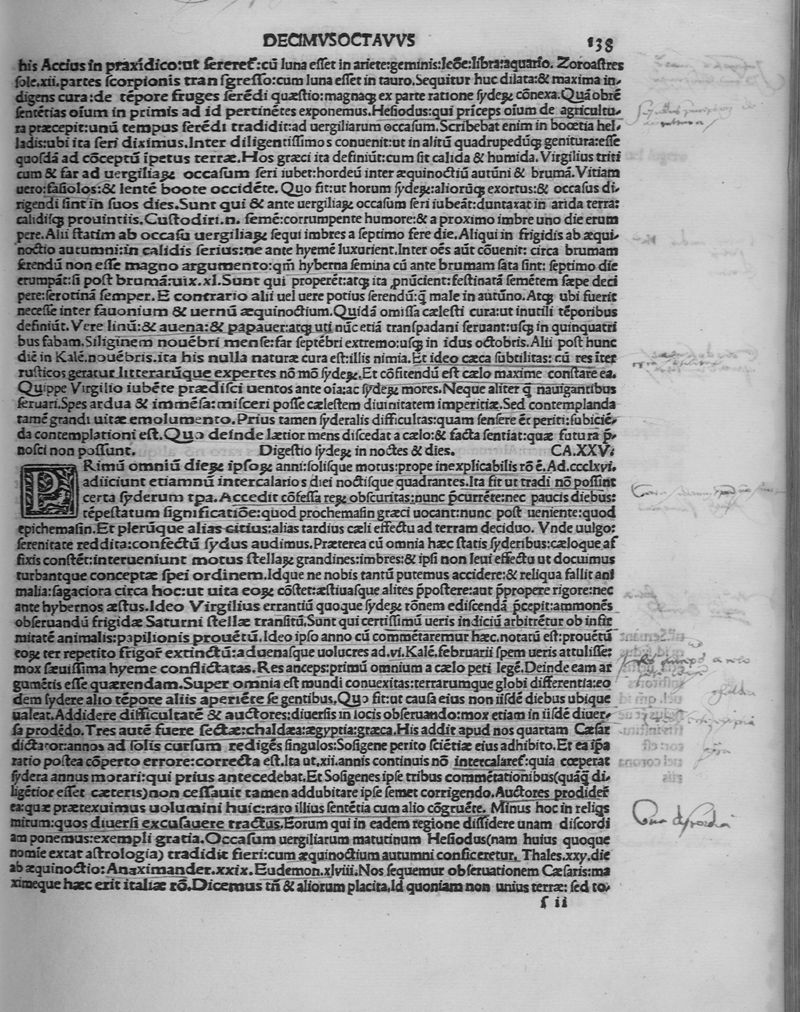 DECIMVSOCTAVVS 138
his Accius in praxidico:ut sereret᷑:cū luna esset in ariete:geminis:leōe:libra:aquario. Zoroastres
sole.xii.partes scorpionis transgresso:cum luna esset in tauro.Sequitur huc dilata:& maxima in⸗
digens cura:de tēpore fruges serēdi quæstio:magnaqꝫ ex parte ratione sydeꝝ cōnexa.Quā obrē
sentētias oīum in primis ad id pertinētes exponemus.Hesiodus:qui prīceps oīum de agricultu⸗
ra præcepit:unū tempus serēdi tradidit:ad uergiliarum occasum.Scribebat enim in boœtia hel⸗
ladis:ubi ita seri diximus.Inter diligentissimos conuenit:ut in alitū quadrupedūqꝫ genitura:esse
quosdā ad cōceptū īpetus terræ.Hos græci ita definiūt:cum sit calida & humida.Virgilius triti
cum & far ad uergiliaꝝ occasum seri iubet:hordeū inter æquinoctiū autūni & brumā.Vitiam
uero:fasiolos:& lentē boote occidēte. Quo fit:ut horum sydeꝝ:aliorūqꝫ exortus:& occasus di⸗
rigendi sint in suos dies.Sunt qui & ante uergiliaꝝ occasum seri iubeāt:dūtaxat in arida terra:
calidisqꝫ prouintiis.Custodiri.n. semē:corrumpente humore:& a proximo imbre uno die erum
pere.Alii statim ab occasu uergiliaꝝ sequi imbres a septimo fere die.Aliqui in frigidis ab æqui⸗
noctio autumni:in calidis serius:ne ante hyemē luxurient.Inter oēs aūt cōuenit: circa brumam
serendū non esse magno argumento:qm̄ hyberna semina cū ante brumam sata sint: septimo die
erumpāt:si post brumā:uix.xl.Sunt qui properēt:atqꝫ ita pnūcient:festinatā semētem sæpe deci
pere:serotinā semper.E contrario alii uel uere potius serendū:q̄ male in autūno.Atqꝫ ubi fuerit
necesse inter fauonium & uernū æquinoctium.Quidā omissa cælesti cura:ut inutili tēporibus
definiūt.Vere linū:& auena:& papauer:atqꝫ uti nūc etiā transpadani seruant:usqꝫ in quinquatri
bus fabam.Siliginem nouēbri mense:far septēbri extremo:usqꝫ in idus octobris.Alii post hunc
diē in Kalē.nouēbris.ita his nulla naturæ cura est:illis nimia.Et ideo cæca subtilitas: cū res īter
rusticos geratur litterarūque expertes nō mō sydeꝝ.Et cōfitendū est cælo maxime constare ea.
Quippe Virgilio iubēte prædisci uentos ante oīa:ac sydeꝝ mores.Neque aliter q̄ nauigantibus
seruari.Spes ardua & immēsa:misceri posse cælestem diuinitatem imperitiæ.Sed contemplanda
tamē grandi uitæ emolumento.Prius tamen syderalis difficultas:quam sensere ēt periti:subiciē⸗
da contemplationi est.Quo deinde lætior mens discedat a cælo:& facta sentiat:quæ futura p̄⸗
nosci non possunt. Digestio sydeꝝ in noctes & dies. CA.XXVi
PRimū omniū dieꝝ ipsoꝝ anni:solisque motus:prope inexplicabilis rō ē.Ad.ccclxvi.
adiiciunt etiamnū intercalarios diei noctisque quadrantes.Ita fit ut tradi nō possint
certa syderum tpa.Accedit cōfessa reꝝ obscuritas:nunc p̄currēte:nec paucis diebus:
tēpestatum significatiōe:quod prochemasin græci uocant:nunc post ueniente:quod
epichemasin.Et plerūque alias citius:alias tardius cæli effectu ad terram deciduo. Vnde uulgo:
serenitate reddita:confectū sydus audimus.Præterea cū omnia hæc statis syderibus:cæloque af
fixis constēt:interueniunt motus stellaꝝ grandines:imbres:& ipsi non leui effectu ut docuimus
turbantque conceptæ spei ordinem.Idque ne nobis tantū putemus accidere:& reliqua fallit ani
malia:sagaciora circa hoc:ut uita eoꝝ cōstet:æstiuasque alites p̄postere:aut p̄propere rigore:nec
ante hybernos æstus.Ideo Virgilius errantiū quoque sydeꝝ rōnem ediscendā p̄cepit:ammonēs
obseruandū frigidæ Saturni stellæ transitū.Sunt qui certissimū ueris indiciū arbitrētur ob infir
mitatē animalis:papilionis prouētū.Ideo ipso anno cū commētaremur hæc.notatū est:prouētū
eoꝝ ter repetito frigore extinctū:aduenasque uolucres ad.vi.Kalē.februarii spem ueris attulisse:
mox sæuissima hyeme conflictatas.Res anceps:primū omnium a cælo peti legē.Deinde eam ar
gumētis esse quærendam.Super omnia est mundi conuexitas:terrarumque globi differentia:eo
dem sydere alio tēpore aliis aperiēte se gentibus.Quo fit:ut causa eius non iisdē diebus ubique
ualeat.Addidere difficultatē & auctores:diuersis in locis obseruando:mox etiam in iisdē diuer⸗
sa prodēdo.Tres autē fuere sectæ:chaldæa:ægyptia:græca.His addit apud nos quartam Cæsar
dictator:annos ad solis cursum redigēs singulos:Sosigene perito sciētiæ eius adhibito.Et ea ip̄a
ratio postea cōperto errore:correcta est.Ita ut.xii.annis continuis nō intercalaret᷑:quia cœperat
sydera annus morari:qui prius antecedebat.Et Sosigenes ipse tribus commētationibus(quāq̄ di⸗
ligētior esset cæteris)non cessauit tamen addubitare ipse semet corrigendo.Auctores prodiderūt
ea:quæ prætexuimus uolumini huic:raro illius sentētia cum alio cōgruēte. Minus hoc in reliqs
mirum:quos diuersi excusauere tractus.Eorum qui in eadem regione dissidere unam discordi
am ponemus:exempli gratia.Occasum uergiliarum matutinum Hesiodus(nam huius quoque
nomie extat astrologia) tradidit fieri:cum æquinoctium autumni conficeretur. Thales.xxy.die
ab æquinoctio:Anaximander.xxix.Eudemon.xlviii.Nos sequemur obseruationem Cæsaris:ma
ximeque hæc erit italiæ rō.Dicemus tn̄ & aliorum placita.Id quoniam non unius terræ: sed to⸗
s ii